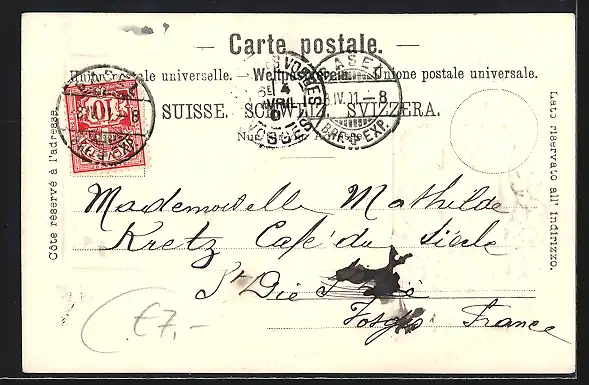 — Carte postale. —
Union postale universelle. — Weltpostverein. — Unione postale universale.
SUISSE. SCHWEIZ. SVIZZERA.
Côté réservé à l'adresse.
Lato riservato all' indirizzo.
BASEL
IV. 01 – 8
BRF. EXP.
VOSGES
4
AVRIL
10
Mademoiselle Mathilde
Kretz Café du Siècle
St Die
Vosges France
£7,-